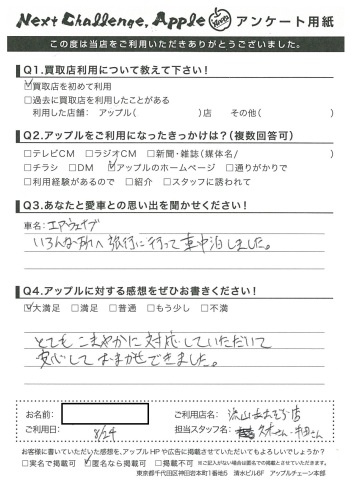 Next Challenge, Apple アンケート用紙
この度は当店をご利用いただきありがとうございました。
Q1.買取店利用について教えて下さい!
☑買取店を初めて利用
□過去に買取店を利用したことがある
利用した店舗: アップル( )店 その他( )
Q2.アップルをご利用になったきっかけは?(複数回答可)
□テレビCM □ラジオCM □新聞・雑誌(媒体名/ )
□チラシ □DM ☑アップルのホームページ □通りがかりで
□利用経験があるので □紹介 □スタッフに誘われて
Q3.あなたと愛車との思い出を聞かせください!
車名: エアウェイブ
いろんな所へ旅行に行って車中泊しました。
Q4.アップルに対する感想をぜひお書きください!
☑大満足 □満足 □普通 □もう少し □不満
とてもこまやかに対応していただいて
安心しておまかせできました。
お名前: ご利用店名: 流山おおたかの森店
ご利用日: 8/24 担当スタッフ名: さん
お客様に書いていただいた感想を、アップルHPや広告に掲載させていただいてもよろしいでしょうか?
□実名で掲載可 ☑匿名なら掲載可 □掲載不可 ※ご記入がない場合は匿名での掲載とさせていただきます。
東京都千代田区神田岩本町1番地5 清水ビル6F アップルチェーン本部